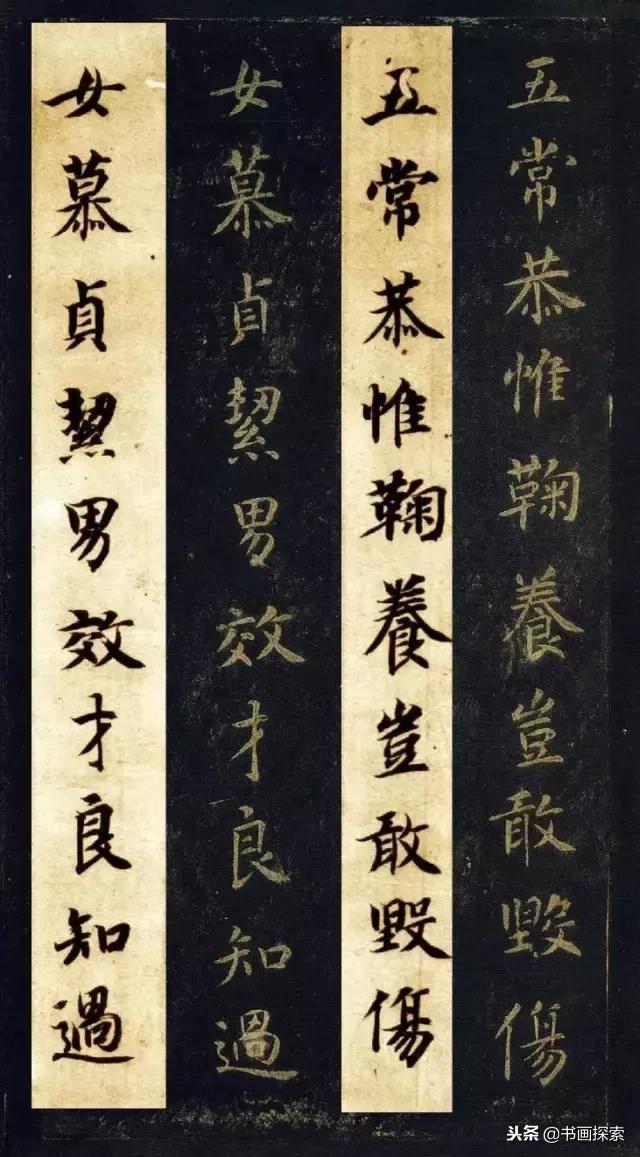 五常恭惟鞠養豈敢毀傷
五常恭惟鞠養豈敢毀傷
女慕貞絜男效才良知過
女慕貞絜男效才良知過
头条 @书画探索